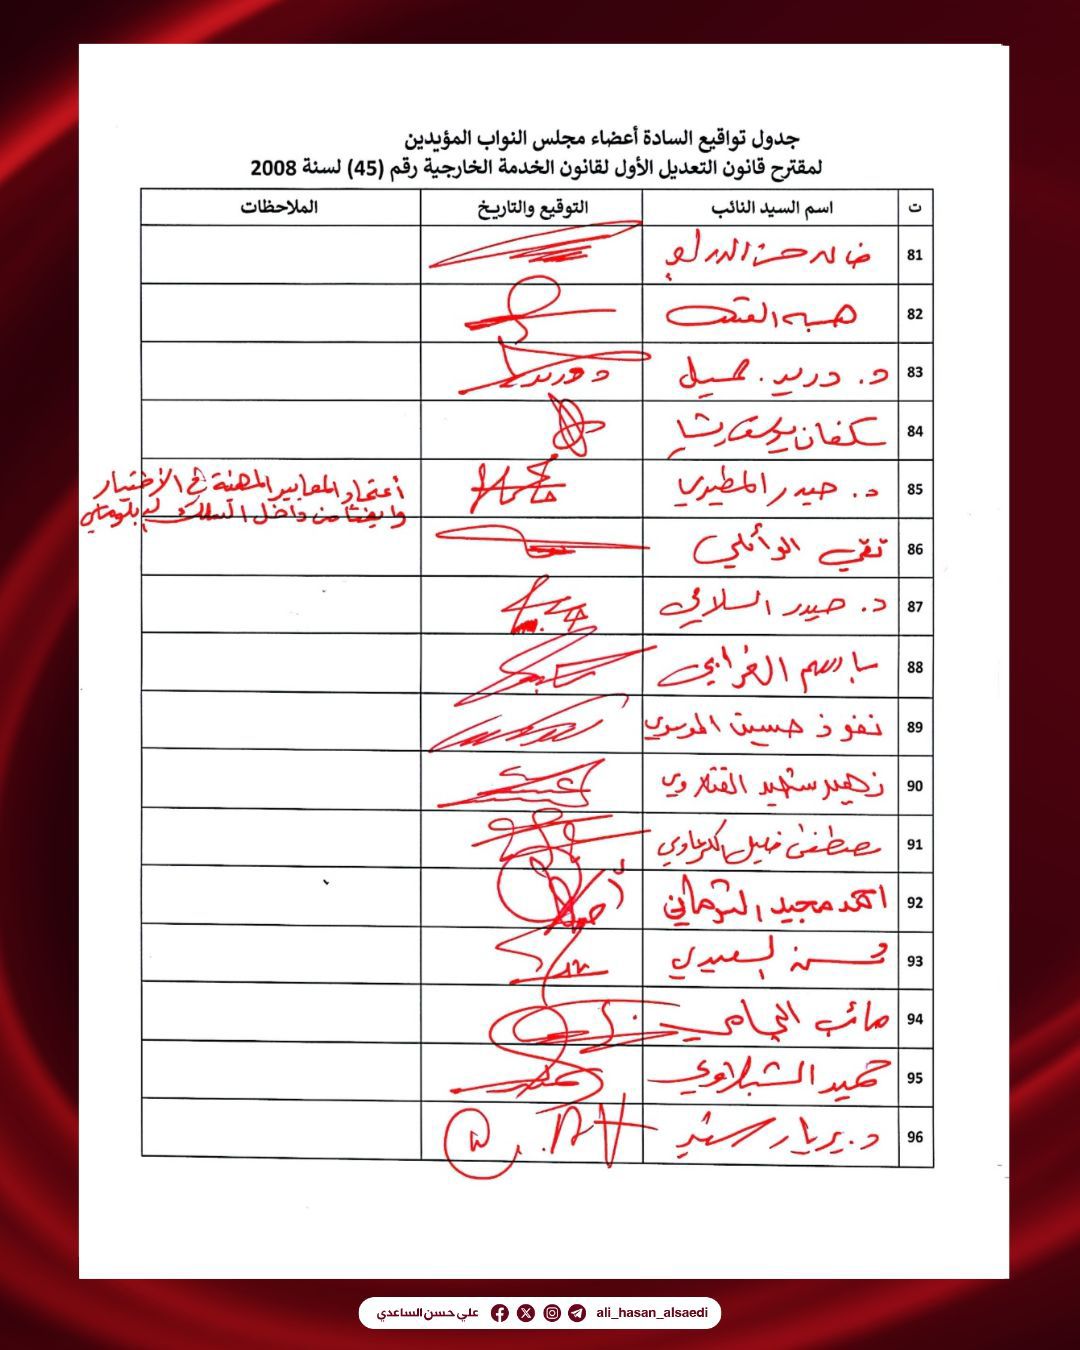 جدول تواقيع السادة أعضاء مجلس النواب المؤيدين
لمقترح قانون التعديل الأول لقانون الخدمة الخارجية رقم (45) لسنة 2008
ت اسم السيد النائب التوقيع والتاريخ الملاحظات
81 خالد حسن
82 هيبه
83 د. دريد جميل
84 سكفان يوسف
85 د. حيدر المطيري أعتماد المعايير المهنية في الأختيار
وايضا من داخل السلك
86 تقي الوائلي
87 د. حيدر السلامي
88 باسم الغرابي
89 نفوذ حسين الموسوي
90 زهير شهيد الفتلاوي
91 مصطفى خليل الكرعاوي
92 احمد مجيد
93 السعيدي
94
95 حميد الشبلاوي
96 د.
علي حسن الساعدي ali_hasan_alsaedi